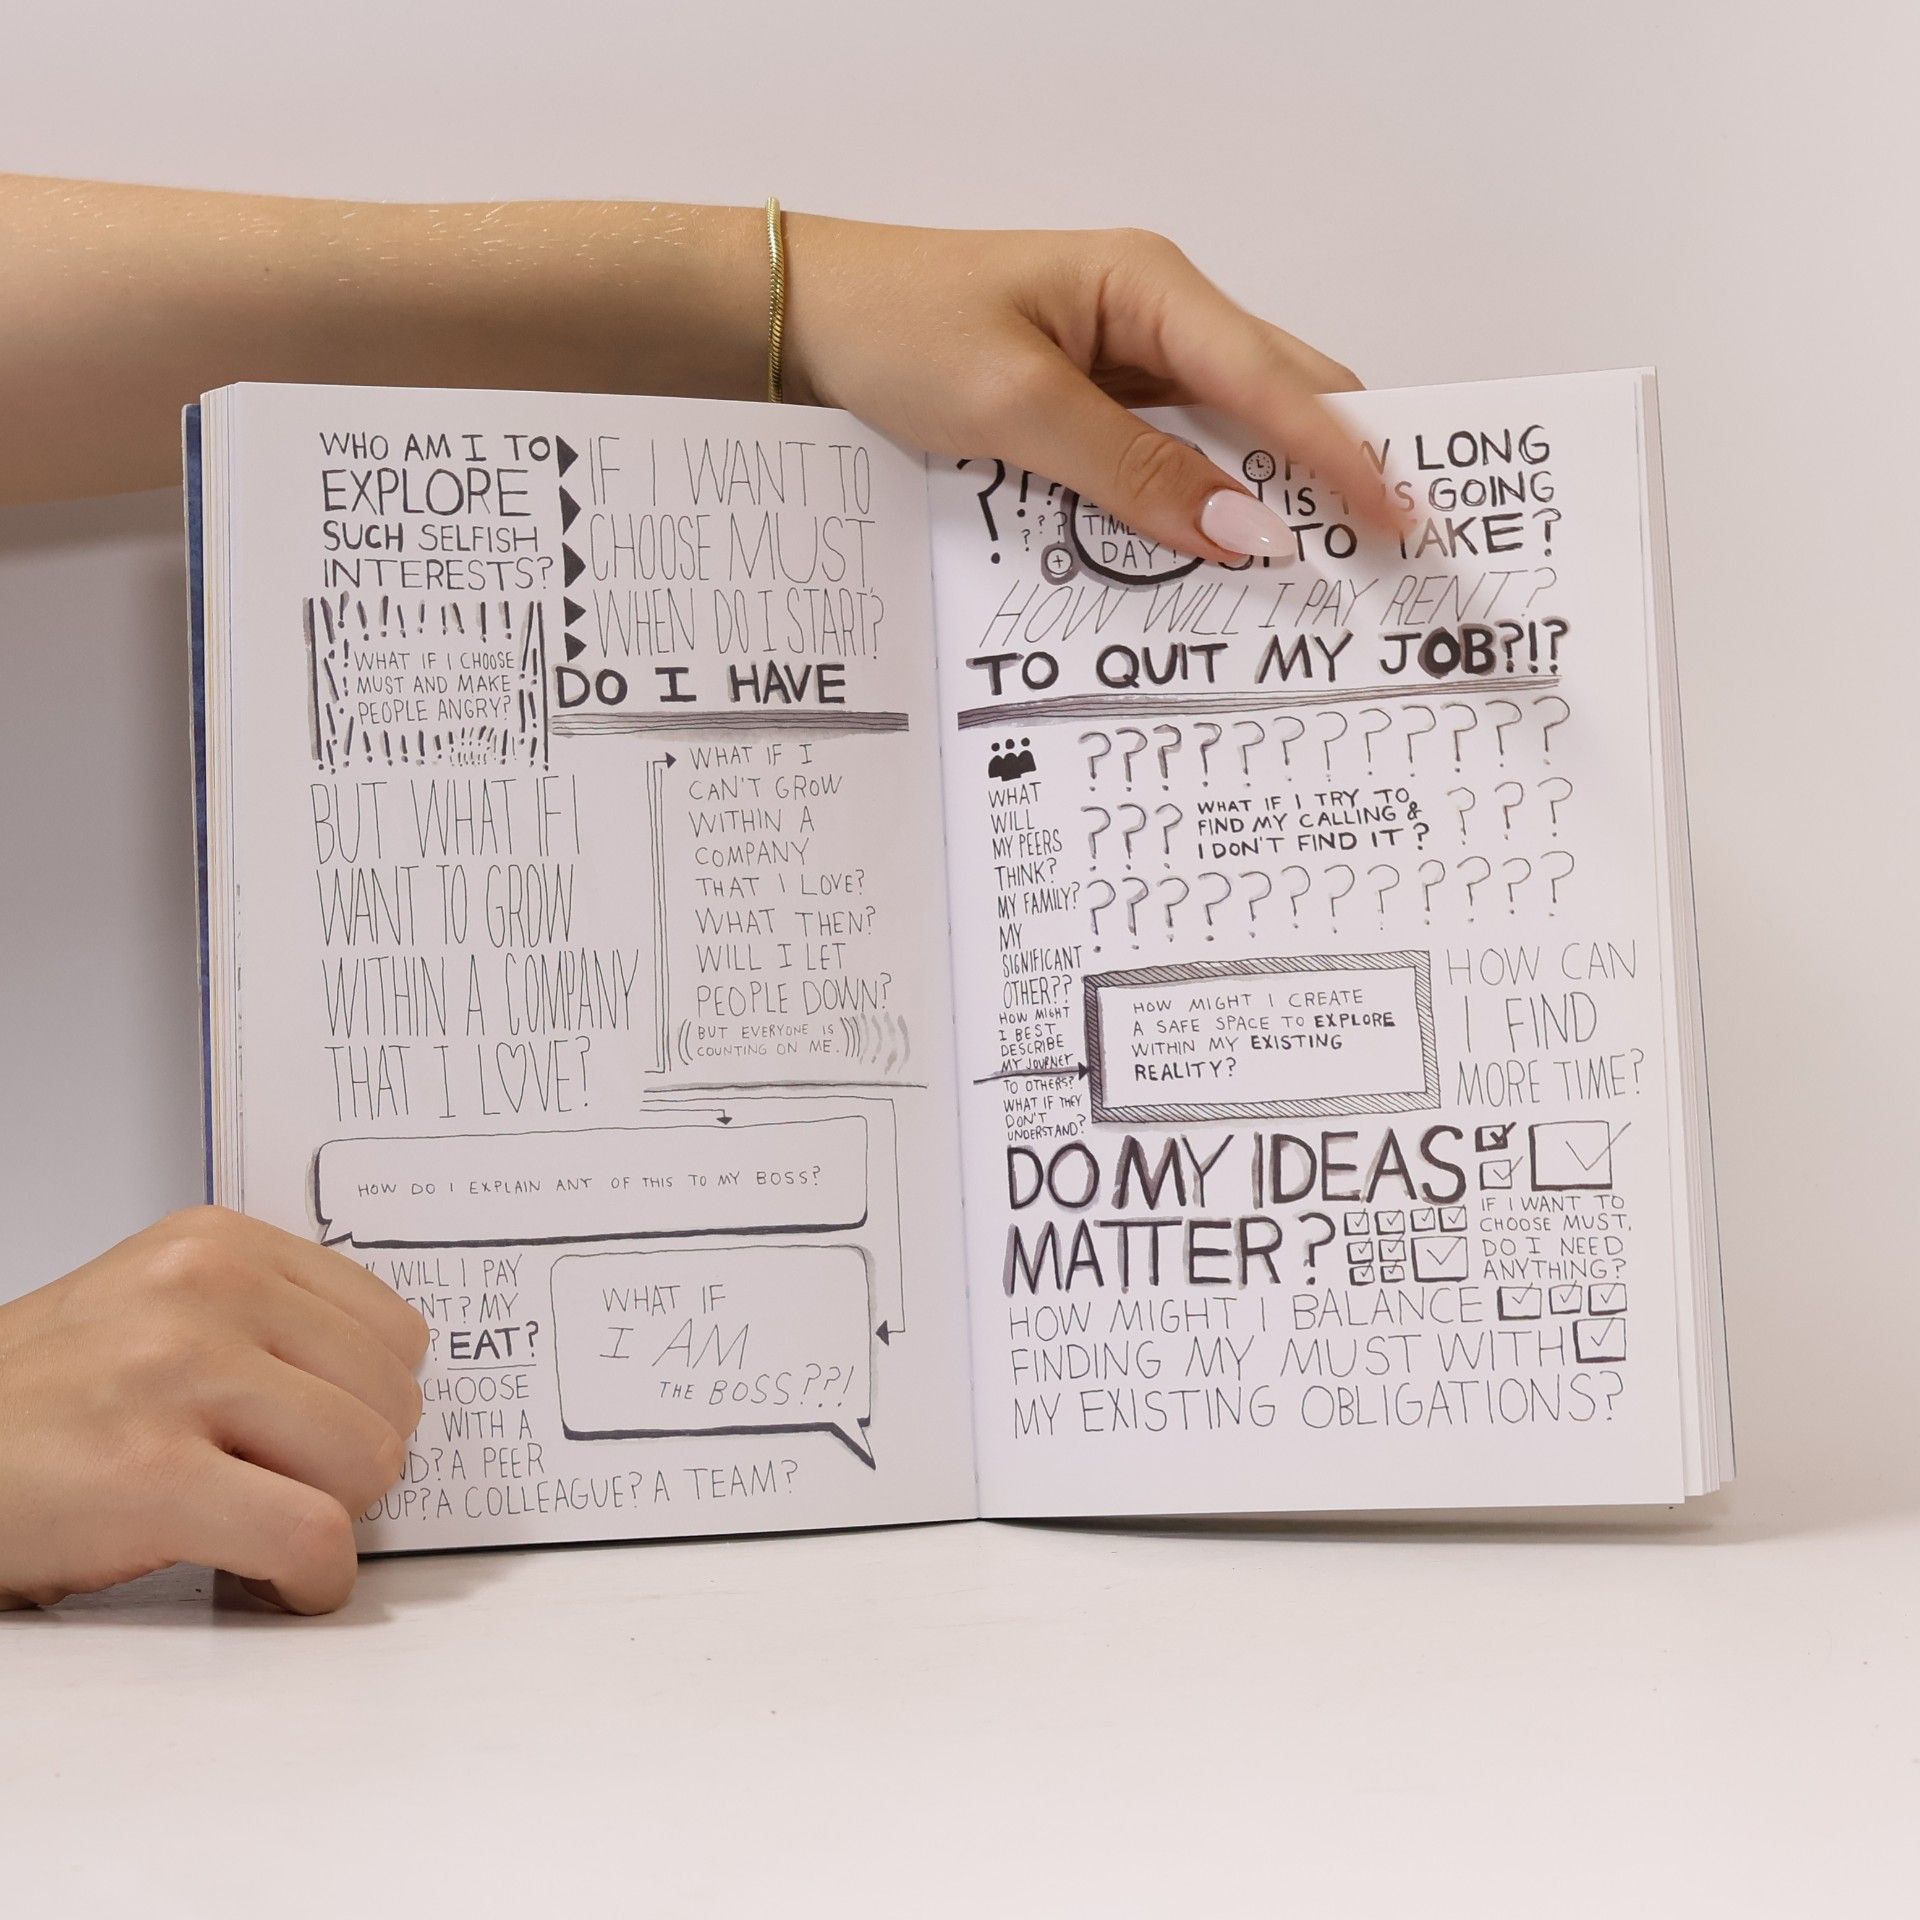 WHO AM I TO
EXPLORE
SUCH SELFISH
INTERESTS?
IF I WANT TO
CHOOSE MUST,
WHEN DO I START?
WHAT IF I CHOOSE
MUST AND MAKE
PEOPLE ANGRY?
DO I HAVE
BUT WHAT IF I
WANT TO GROW
WITHIN A COMPANY
THAT I LOVE?
WHAT IF I
CAN'T GROW
WITHIN A
COMPANY
THAT I LOVE?
WHAT THEN?
WILL I LET
PEOPLE DOWN?
(BUT EVERYONE IS
COUNTING ON ME.)
HOW DO I EXPLAIN ANY OF THIS TO MY BOSS?
WILL I PAY
MY
EAT?
CHOOSE
WITH A
A PEER
A COLLEAGUE? A TEAM?
WHAT IF
I AM
THE BOSS??!
DAY?
LONG
IS GOING
TO TAKE?
HOW WILL I PAY RENT?
TO QUIT MY JOB?!?
? ? ? ? ? ? ? ? ? ? ? ?
WHAT
WILL
MY PEERS
THINK?
MY FAMILY?
MY
SIGNIFICANT
OTHER??
HOW MIGHT
I BEST
DESCRIBE
MY JOURNEY
TO OTHERS?
WHAT IF THEY
DON'T
UNDERSTAND?
WHAT IF I TRY TO
FIND MY CALLING &
I DON'T FIND IT?
HOW MIGHT I CREATE
A SAFE SPACE TO EXPLORE
WITHIN MY EXISTING
REALITY?
HOW CAN
I FIND
MORE TIME?
DO MY IDEAS
MATTER?
IF I WANT TO
CHOOSE MUST,
DO I NEED
ANYTHING?
HOW MIGHT I BALANCE
FINDING MY MUST WITH
MY EXISTING OBLIGATIONS?